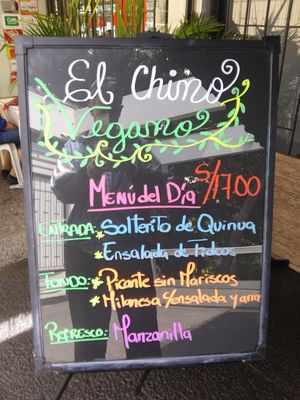 El Chino
Vegano
Menú del Día S/17.00
ENTRADA: * Solterito de Quinua
* Ensalada de Fideos
FONDO: * Picante sin Mariscos
* Milanesa c/ensalada y arroz
Refresco: Manzanilla